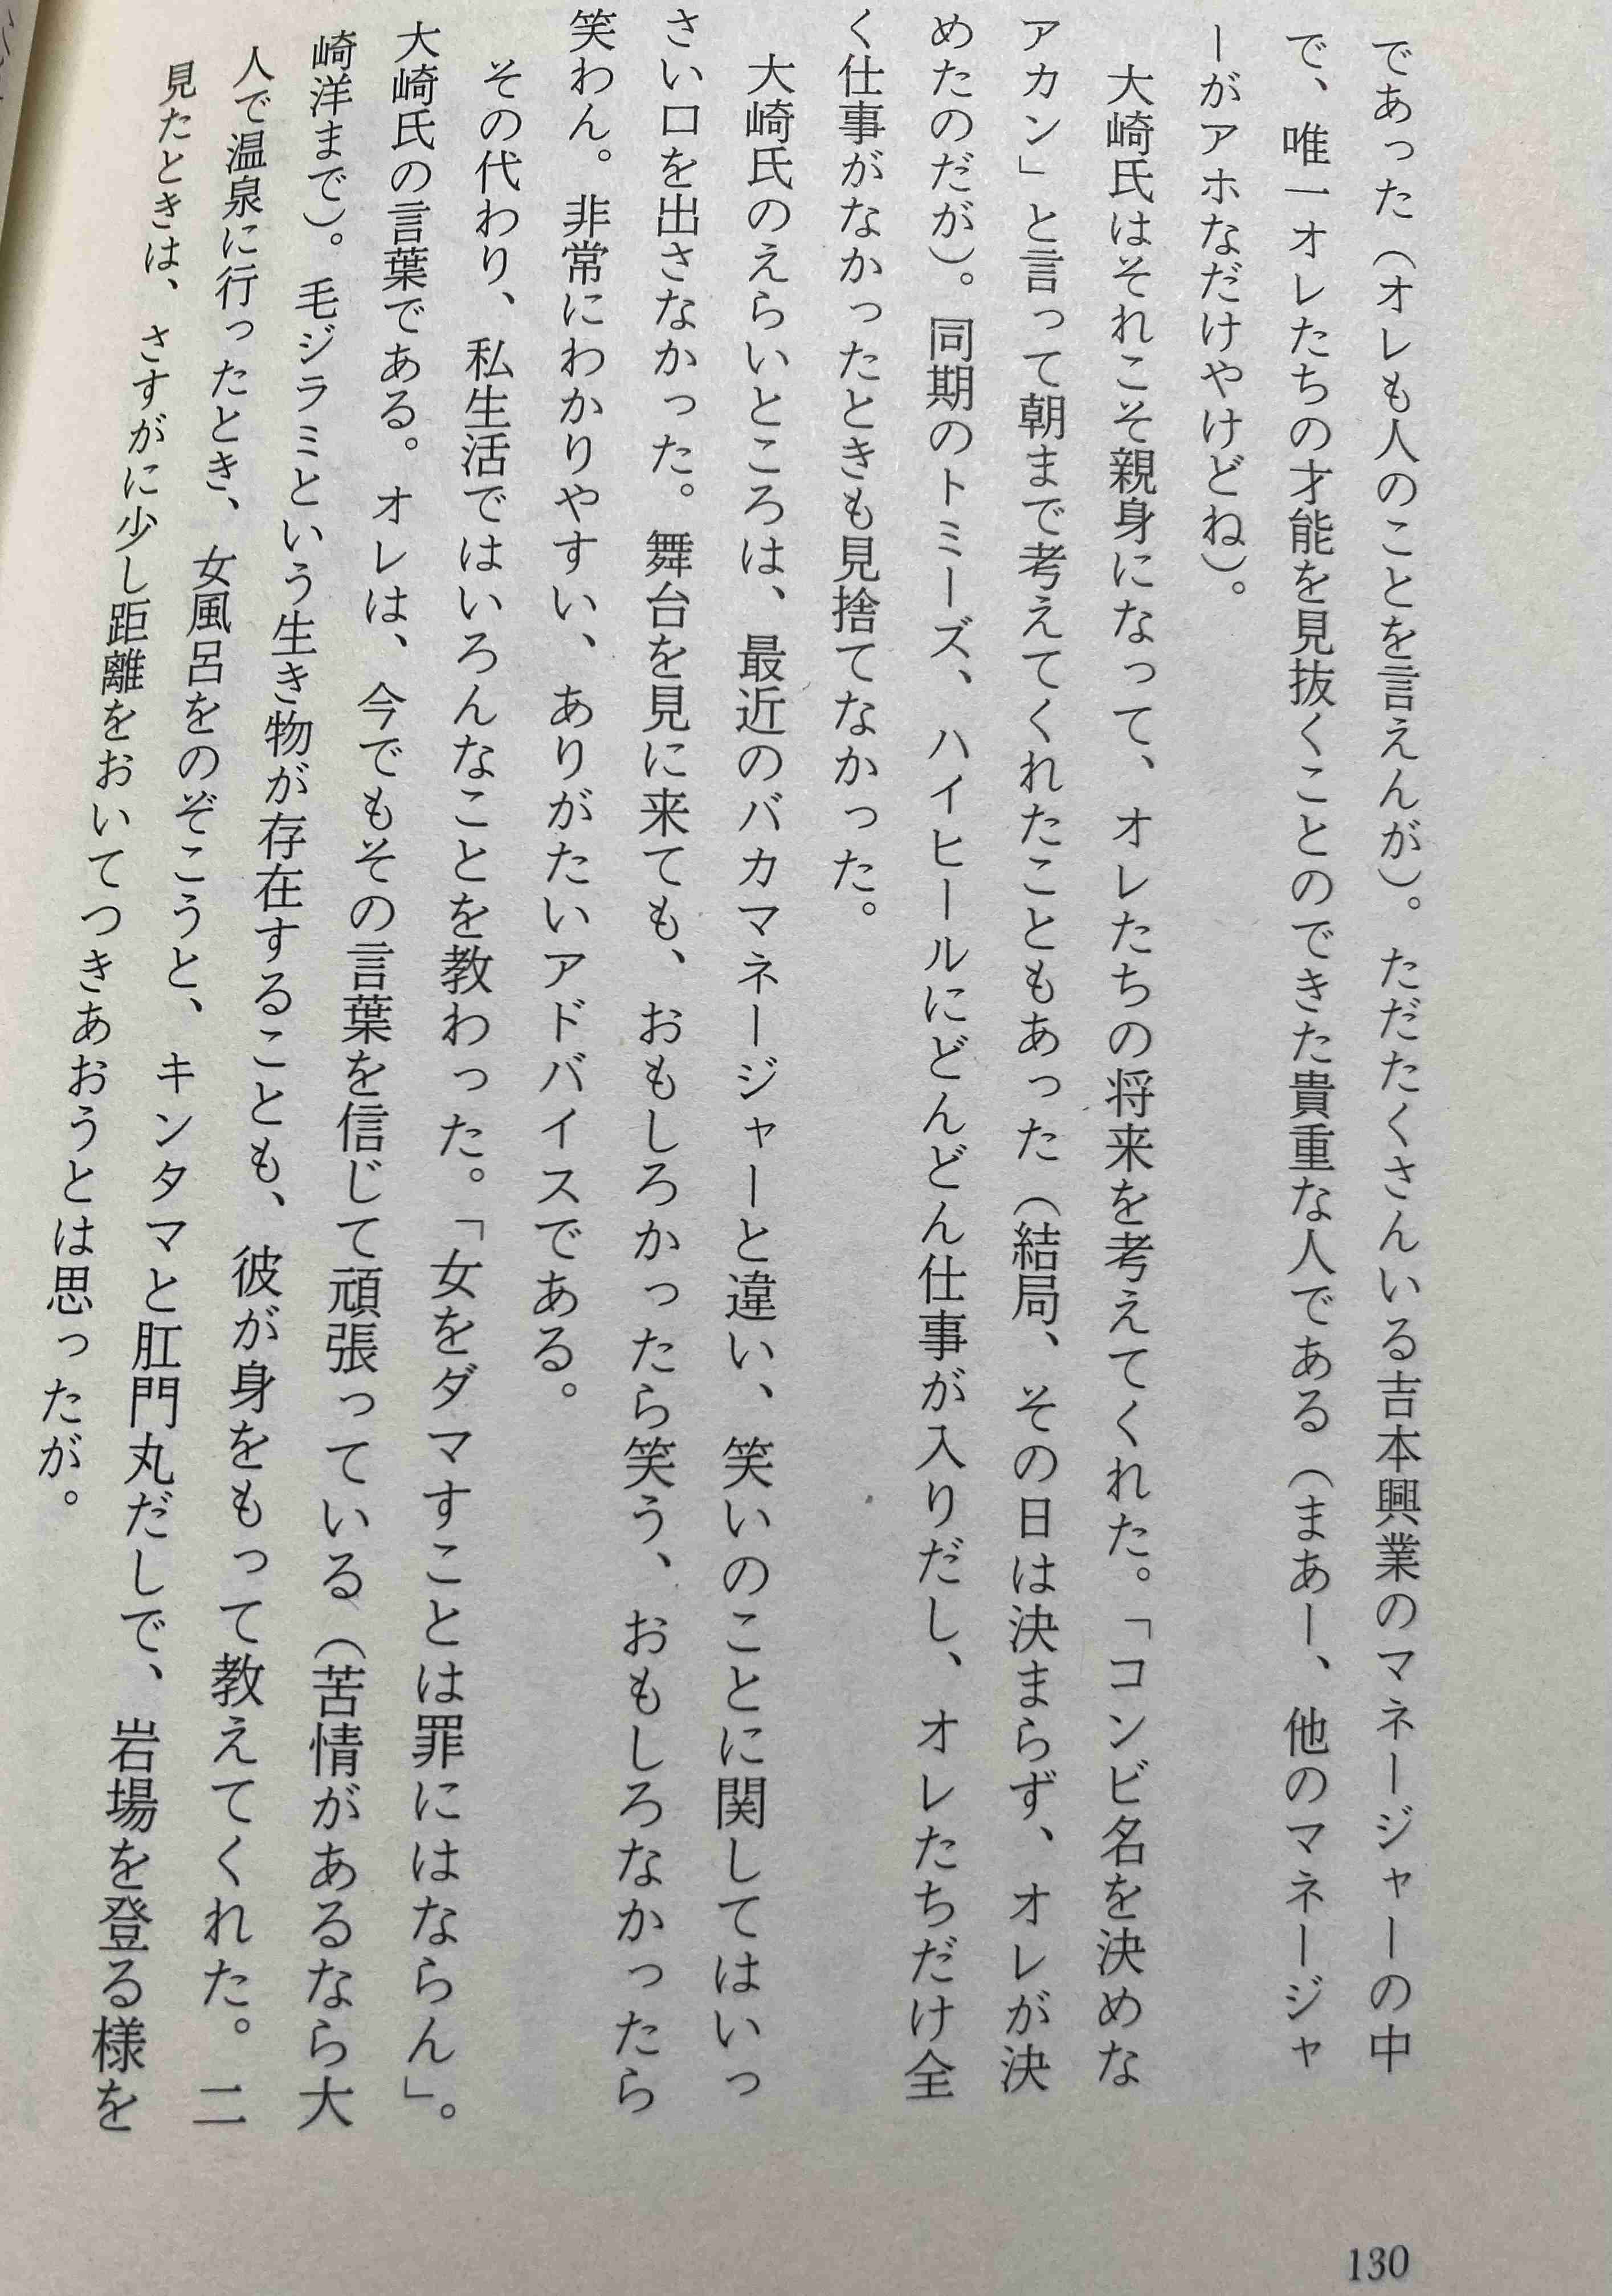 であった（オレも人のことを言えんが）。ただたくさんいる吉本興業のマネージャーの中
で、唯一オレたちの才能を見抜くことのできた貴重な人である（まあー、他のマネージャ
ーがアホなだけやけどね）。
大崎氏はそれこそ親身になって、オレたちの将来を考えてくれた。「コンビ名を決めな
アカン」と言って朝まで考えてくれたこともあった（結局、その日は決まらず、オレが決
めたのだが）。同期のトミーズ、ハイヒールにどんどん仕事が入りだし、オレたちだけ全
く仕事がなかったときも見捨てなかった。
大崎氏のえらいところは、最近のバカマネージャーと違い、笑いのことに関してはいっ
さい口を出さなかった。舞台を見に来ても、おもしろかったら笑う、おもしろなかったら
笑わん。非常にわかりやすい、ありがたいアドバイスである。
その代わり、私生活ではいろんなことを教わった。「女をダマすことは罪にはならん」。
大崎氏の言葉である。オレは、今でもその言葉を信じて頑張っている（苦情があるなら大
崎洋まで）。毛ジラミという生き物が存在することも、彼が身をもって教えてくれた。二
人で温泉に行ったとき、女風呂をのぞこうと、キンタマと肛門丸だしで、岩場を登る様を
見たときは、さすがに少し距離をおいてつきあおうとは思ったが。
130